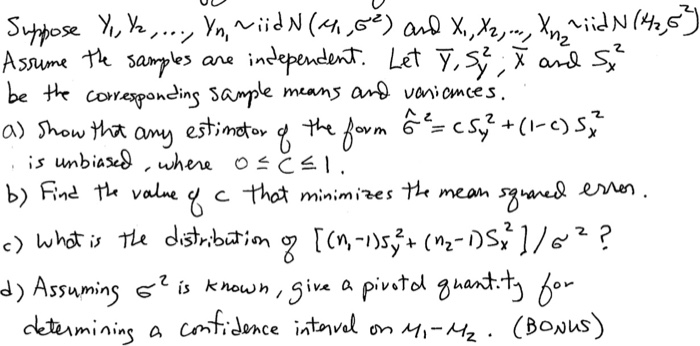 Suppose Y₁, Y₂, ..., Yn₁ ~ iid N(μ₁, σ²) and X₁, X₂, ..., Xn₂ ~ iid N(μ₂, σ²)
Assume the samples are independent. Let Ȳ, S_y², X̄ and S_x²
be the corresponding sample means and variances.
a) Show that any estimator of the form σ̂² = c S_y² + (1-c) S_x²
is unbiased, where 0 ≤ c ≤ 1.
b) Find the value of c that minimizes the mean squared error.
c) What is the distribution of [(n₁-1)S_y² + (n₂-1)S_x²]/σ² ?
d) Assuming σ² is known, give a pivotal quantity for
determining a confidence interval on μ₁-μ₂. (BONUS)